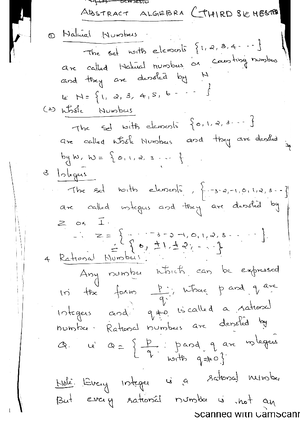 ABSTRACT ALGEBRA (THIRD SEMESTER
(1) Natural Numbers
The set with elements {1, 2, 3, 4 ...}
are called Natural numbers or counting numbers
and they are denoted by N
is N = {1, 2, 3, 4, 5, 6 .....}
(2) Whole Numbers
The set with elements {0, 1, 2, 3 ...}
are called Whole Numbers and they are denoted
by W, W = {0, 1, 2, 3 ...}
3 Integers
The set with elements, {...-3-2-1, 0, 1, 2, 3...}
are called integers and they are denoted by
Z or I.
∴ Z = {.....-3-2-1, 0, 1, 2, 3.....}
= {0, ±1, ±2, ....}
4. Rational Numbers
Any number which can be expressed
in the form p/q, where p and q are
integers and q≠0 is called a rational
number. Rational numbers are denoted by
Q. is Q = {p/q : p and q are integers
with q≠0}
Note: Every integer is a rational number
But every rational number is not an
Scanned with CamScann